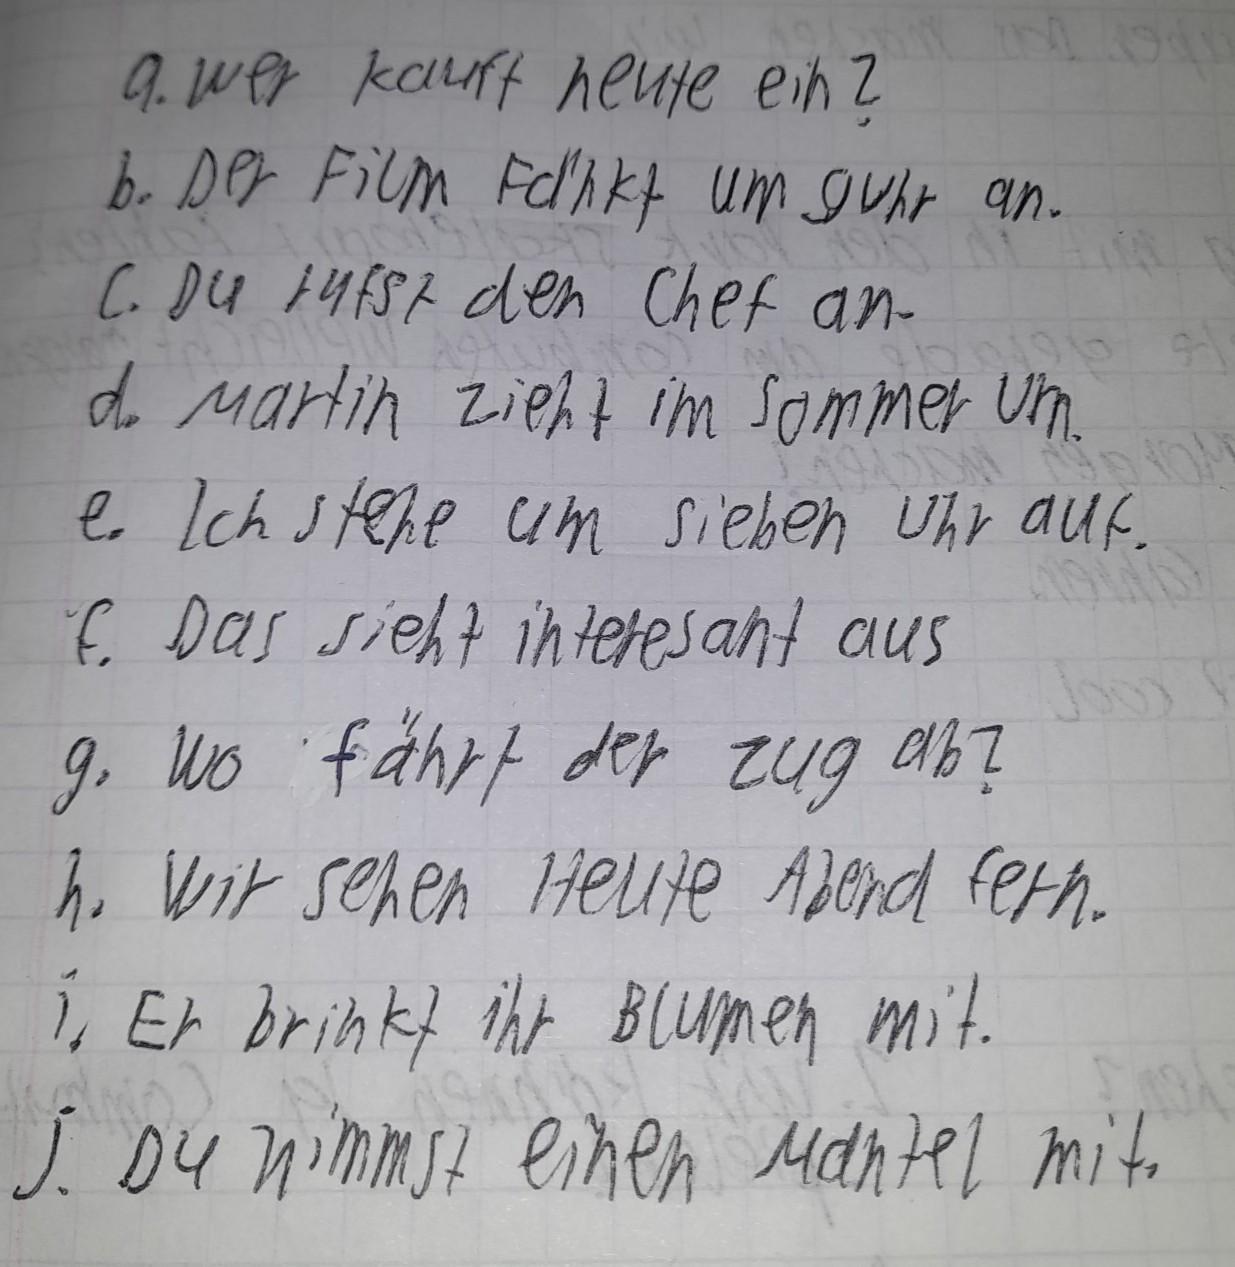 a. Wer kauft heute ein?
b. Der Film Fänkt um 9 Uhr an.
C. Du rufst den Chef an.
d. Martin zieht im Sommer um.
e. Ich stehe um sieben Uhr auf.
f. Das sieht interesant aus
g. Wo fährt der Zug ab?
h. Wir sehen Heute Abend fern.
i. Er brinkt ihr Blumen mit.
j. Du nimmst einen Mantel mit.